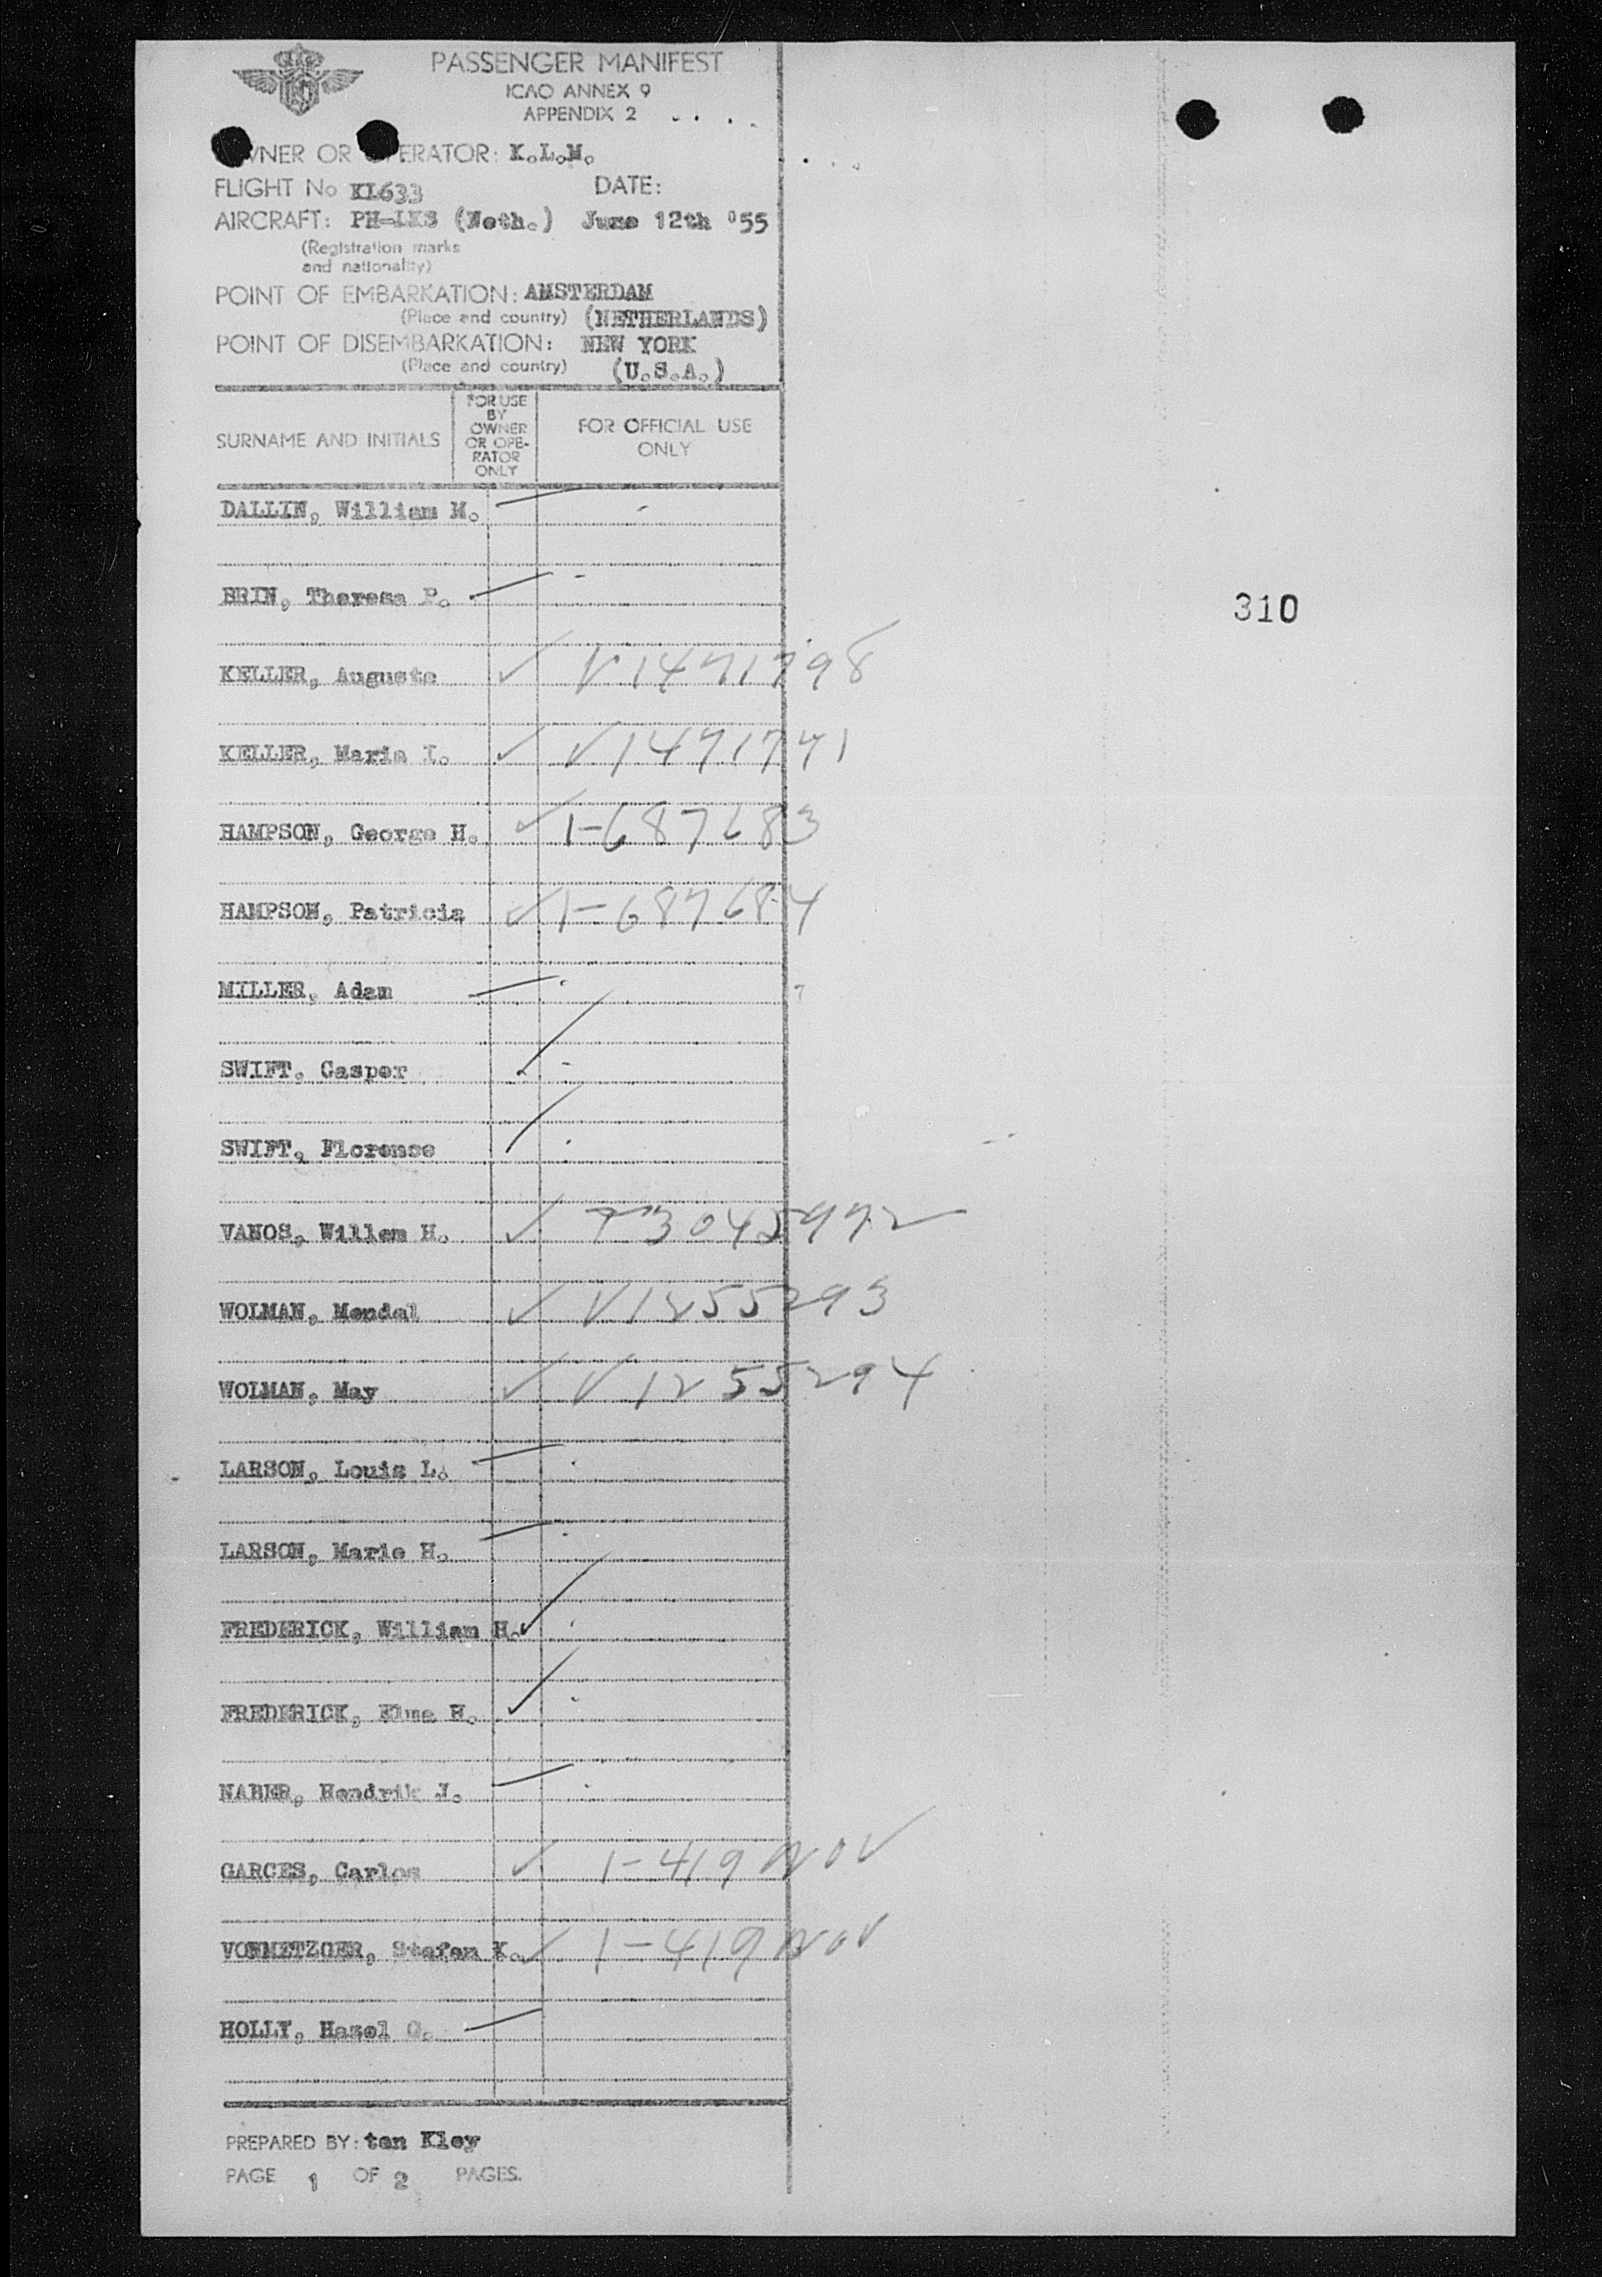 PASSENGER MANIFEST
ICAO ANNEX 9
APPENDIX 2
OWNER OR OPERATOR: K.L.M.
FLIGHT No KL633 DATE:
AIRCRAFT: PH-LKS (Neth.) June 12th '55
(Registration marks
and nationality)
POINT OF EMBARKATION: AMSTERDAM
(Place and country) (NETHERLANDS)
POINT OF DISEMBARKATION: NEW YORK
(Place and country) (U.S.A.)
SURNAME AND INITIALS
FOR USE
BY
OWNER
OR OPE-
RATOR
ONLY
FOR OFFICIAL USE
ONLY
DALLIN, William M.
BRIN, Theresa P.
310
KELLER, Auguste
KELLER, Maria I. V1471741
HAMPSON, George H. 1-687683
HAMPSON, Patricia 1-687684
MILLER, Adam
SWIFT, Casper
SWIFT, Florence
VANOS, Willem H.
WOLMAN, Mendel V1255293
WOLMAN, May V1255294
LARSON, Louis L.
LARSON, Marie H.
FREDERICK, William H.
FREDERICK, H.
NABER, Hendrik J.
GARCES, Carlos 1-419
VONMETZGER, Stefan K. 1-419
HOLLY, Hazel G.
PREPARED BY: ten Kley
PAGE 1 OF 2 PAGES.